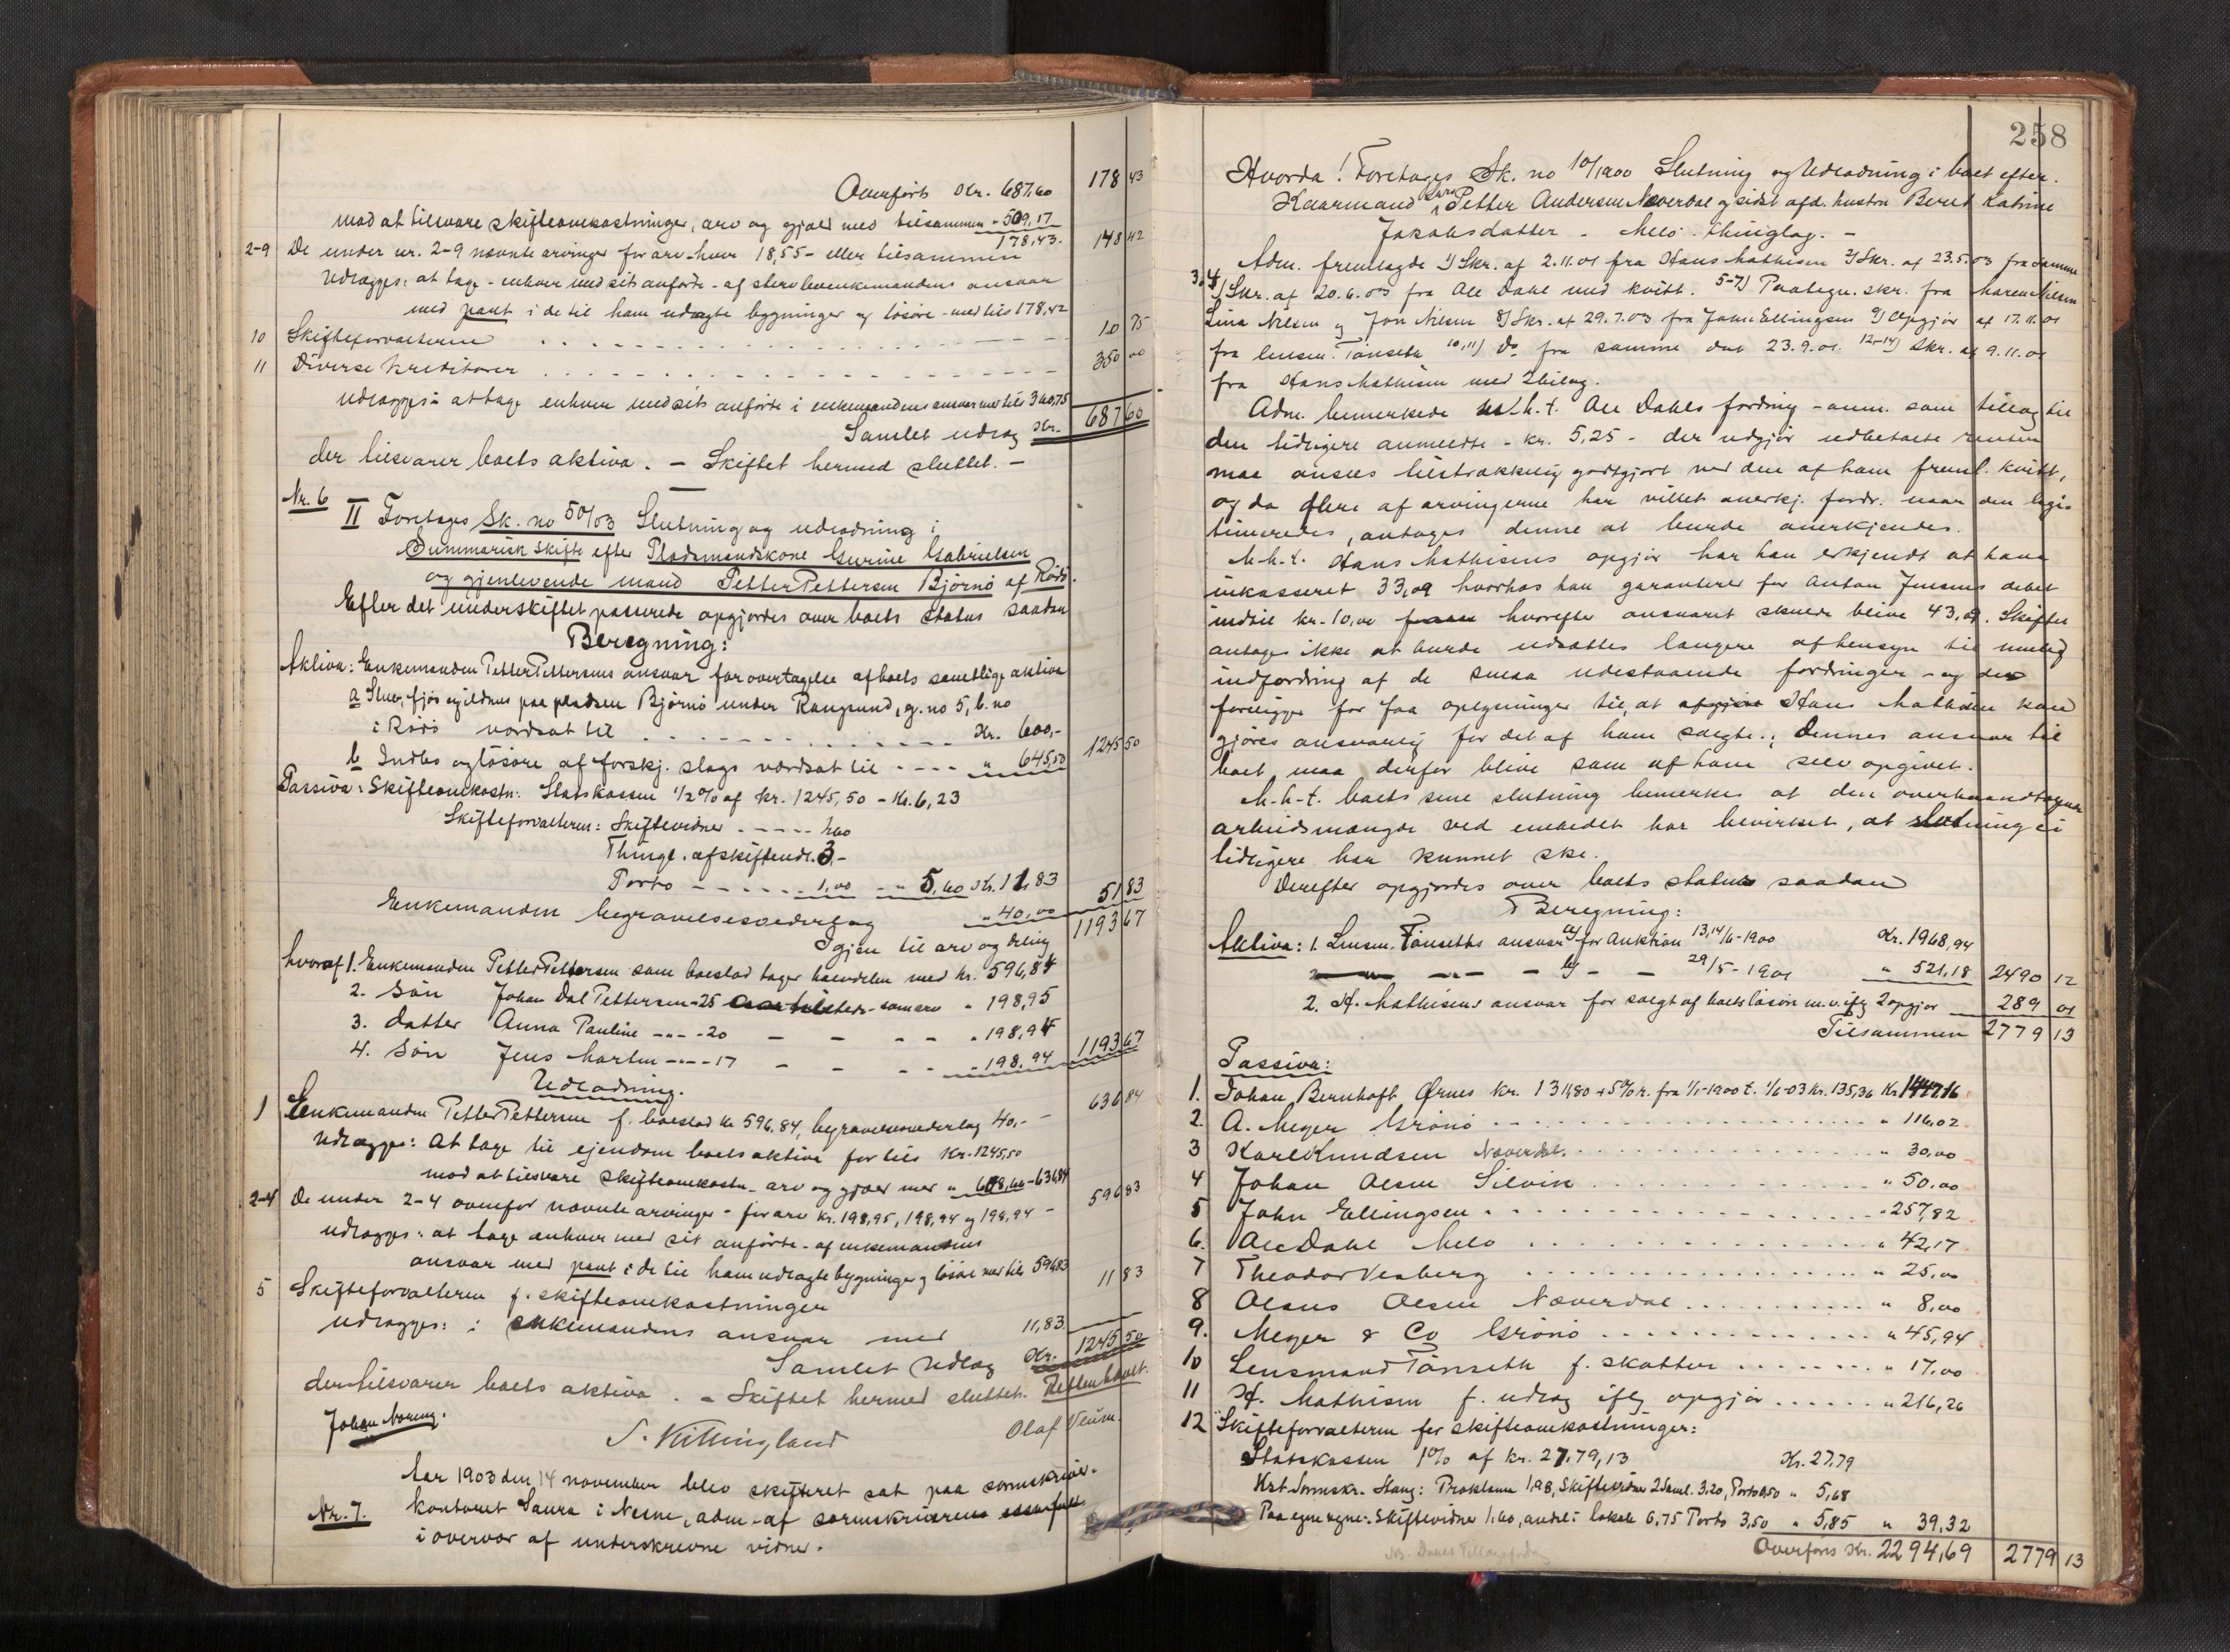 Overført Kr. 687.60 178 43
mod at tilsvare skifteomkostninger, arv og gjæld med tilsammen - 509,17
178,43.
2-9 De under nr. 2-9 nævnte arvinger for arv - hver 18,55 - eller tilsammen 148 42
Udlægges: at tage - enhver med sit anførte - af stervboenkemandens ansvar
med pant i de til ham udlagte bygninger og løsøre - med tils 178,42
10 Skifteforvalteren 10 75
11 Diverse kreditorer 350 00
udlægges: at tage enhver med sit anførte i enkemandens ansvar med tils 360,75
Samlet udlæg Kr. 687 60
der tilsvarer boets aktiva. - Skiftet hermed sluttet. -
Nr. 6
II Foretages Sk. no 50/03 Slutning og udlodning i
Summarisk skifte efter Pladsmandskone Gurine Gabrielsen
og gjenlevende mand Petter Pettersen Bjørnø af Rødø.
Efter det under skiftet passerede opgjordes over boets status saadan
Beregning:
Aktiva: Enkemanden Petter Pettersens ansvar for overtagelse af boets samtlige aktiva
a Stue, fjøs og ildhus paa pladsen Bjørnø under Rangsund, g. no 5, b. no
i Rødø vordsat til Kr. 600,-
b Indbo og løsøre af forskj. slags værdsat til " 645,50 1245 50
Passiva: Skifteomkostn: Statskassen 1/2 % af kr. 1245,50 - Kr. 6,23
Skifteforvalteren: Skiftevidner 1,60
Thingl. af skifteudl. 3,-
Porto 1,00 " 5,60 Kr. 11,83
Enkemanden begravelsesvederlag " 40,00 51 83
Igjen til arv og deling 1193 67
hvoraf 1. Enkemanden Petter Pettersen som boeslod tager halvdelen med kr. 596,84
2. Søn Johan Dal Pettersen - 25 - som arv " 198,95
3. datter Anna Pauline -"- 20 - - - - " 198,94
4. Søn Jens Martin -"- 17 - - - - " 198,94 1193 67
Udlodning.
1 Enkemanden Petter Pettersen f. boeslod kr 596,84, begravelsesvederlag 40,- 636 84
Udlægges: At tage til ejendom boets aktiva for tils Kr. 1245,50
mod at tilsvare skifteomkostn. arv og gjæld med " 608,66 - 636,84
2-4 De under 2-4 ovenfor nævnte arvinger - for arv kr. 198,95, 198,94 og 198,94 - 596 83
udlægges: at tage enhver med sit anførte - af enkemandens
ansvar med pant i de til ham udlagte bygninger og løsøre med tils 596,83
5 Skifteforvalteren f. skifteomkostninger 11 83
udlægges: i enkemandens ansvar med 11,83
Samlet Udlæg Kr. 1245 50
der tilsvarer boets aktiva. - Skiftet hermed sluttet. Retten hævet.
Johan Noreng. S. Killingland Olaf Veum.
Nr. 7. Aar 1903 den 14 november blev skifteret sat paa sorenskriver-
kontoret Saura i Nesne, adm. af sorenskriveren
i overvær af underskrevne vidner.
258
Hvorda! Foretages Sk. no 10/1900 Slutning og Udlodning i boet efter
Kaarmand Petter Andersen Næverdal og sidst afd. hustru Berit Katrine
Jakobsdatter - Melø Thinglag. -
Adm. fremlagde 1) Skr. af 2.11.01 fra Hans Mathisen 2) Skr. af 23.5.03 fra samme
3,4) Skr. af 20.6.03 fra Ole Dahl med kvitt. 5-7) Paategn. skr. fra Maren Nilsen
Lina Nilsen og Jon Nilsen 8) Skr. af 29.7.03 fra John Ellingsen 9) Opgjør af 17.11.01
fra lensm. Tønseth 10,11) Do fra samme dat 23.9.01. 12-14) Skr. af 9.11.01
fra Hans Mathisen med 2 bilag.
Adm. bemerkede m.h.t. Ole Dahls fordring - anm. som tillæg til
den tidligere anmeldte - kr. 5,25 - der udgjør udbetalte renter
maa ansees tilstrækkelig godtgjort ved den af ham freml. kvitt,
og da flere af arvingerne har villet anerkj. fordr. naar den legi-
timeredes, antages denne at burde anerkjendes.
M.h.t. Hans Mathisens opgjør har han erkjendt at have
inkasseret 33,09 hvorhos han garanterer for Anton Jensens debet
indtil kr. 10,00 hvorefter ansvaret skulde blive 43,09. Skiftet
antages ikke at burde udsættes længere af hensyn til mulig
indfordring af de smaa udestaaende fordringer - og der
foreligger for faa oplysninger til, at Hans Mathisen kan
gjøres ansvarlig for det af ham solgte.; dennes ansvar til
boet maa derfor blive som af ham selv opgivet.
M.h.t. boets sene slutning bemerkes at den overhaandtagende
arbeidsmængde ved embedet har bevirket, at slutning ei
tidligere har kunnet ske.
Derefter opgjordes over boets status saadan
Beregning:
Aktiva: 1. Lensm. Tønseths ansvar a) for Auktion 13,14/6-1900 Kr. 1968,94
- b) - - 29/5-1901 " 521,18 2490 12
2. H. Mathisens ansvar for solgt af boets løsøre m.v. iflg 2 opgjør 289 01
Tilsammen 2779 13
Passiva:
1. Johan Bernhoft Ørnes Kr. 1311,80 + 5% r. fra 1/1-1900 t. 1/6-03 kr. 135,36 Kr 1447.16
2. A. Meyer Grønø " 116,02
3 Karl Knudsen Næverdal. " 30,00
4 Johan Olsen Silvik " 50,00
5 John Ellingsen " 257,82
6. Ole Dahl Melø " 42,17
7 Theodor Vesberg " 25,00
8 Olaus Olsen Næverdal " 8,00
9. Meyer & Co Grønø " 45,94
10 Lensmand Tønseth f. skatter " 17,00
11 H. Mathisen f. udlæg iflg opgjør " 216,26
12 Skifteforvalteren for skifteomkostninger:
Statskassen 1% af kr. 27.79,13 Kr. 27.79
Kst. Sorenskr. Stang: Proklama 1,98, Skiftevidner 2 Saml. 3.20, Porto 0,50 " 5,68
Paa egne vegne: Skiftevidner 1,60, andel i lokale 0,75 Porto 3,50 " 5,85 " 39,32
Overføres Kr. 2294,69 2779 13